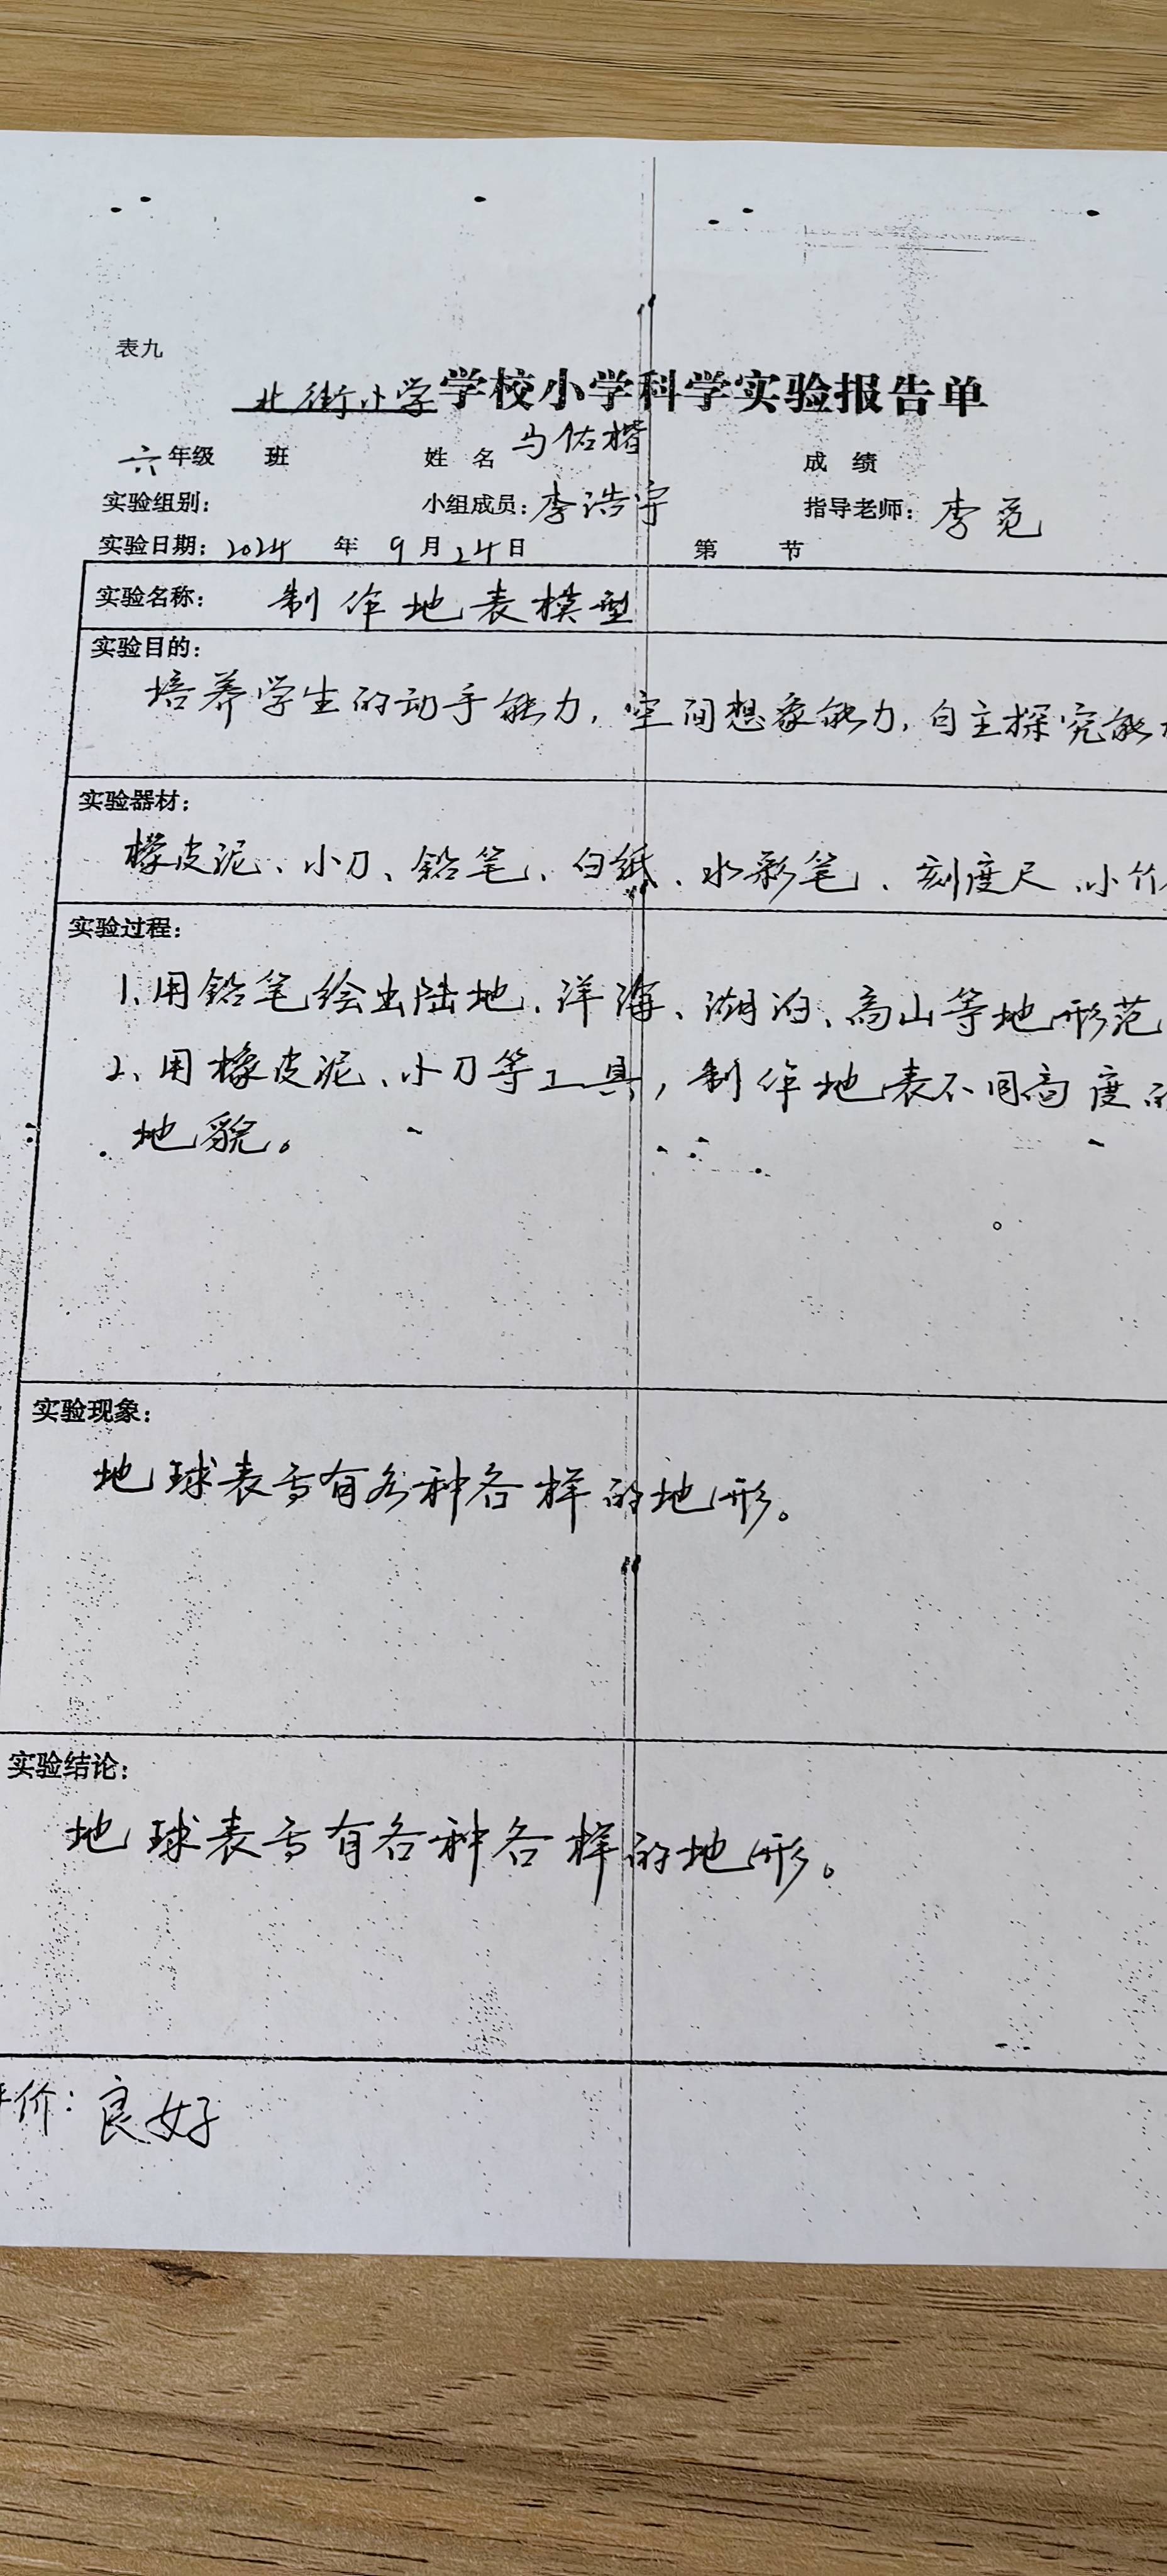 表九
北街小学学校小学科学实验报告单
六年级 班 姓 名 马佑楷 成 绩
实验组别： 小组成员：李浩宇 指导老师：李觅
实验日期：2024 年 9月24日 第 节
实验名称： 制作地表模型
实验目的：
培养学生的动手能力，空间想象能力，自主探究能
实验器材：
橡皮泥、小刀、铅笔、白纸、水彩笔、刻度尺、小竹
实验过程：
1、用铅笔绘出陆地、洋海、湖泊、高山等地形范
2、用橡皮泥、小刀等工具，制作地表不同高度的
地貌。
实验现象：
地球表面有各种各样的地形。
实验结论：
地球表面有各种各样的地形。
评价：良好